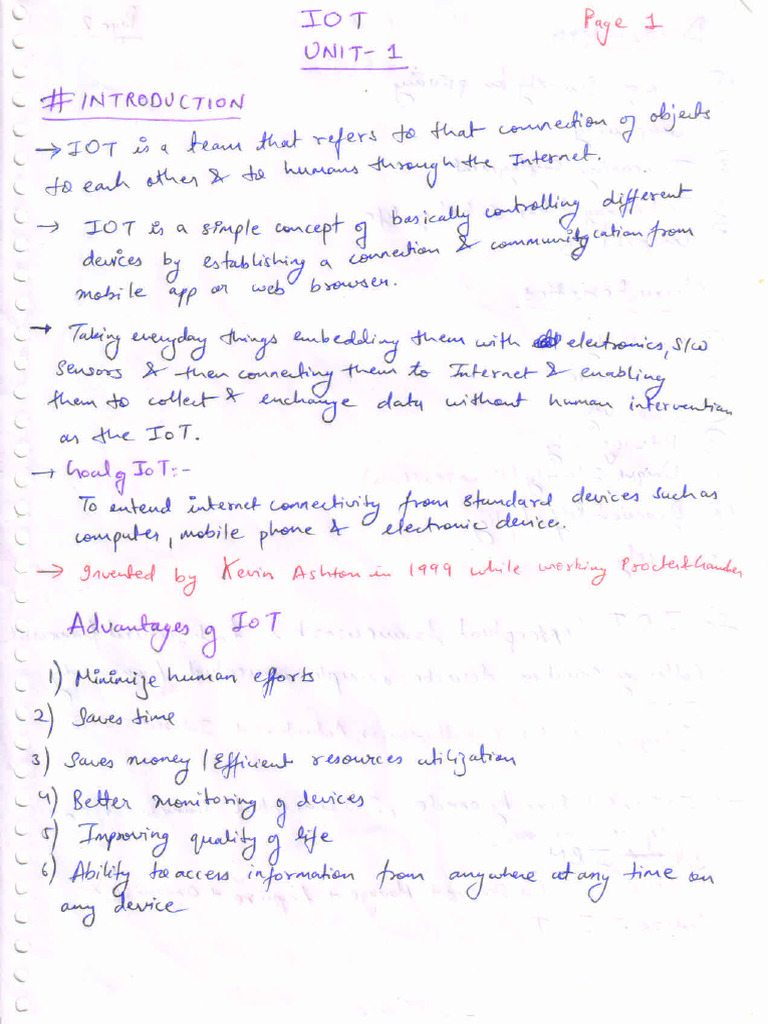 IOT
Page 1
UNIT-1
# INTRODUCTION
→ IOT is a team that refers to that connection of objects
to each other & to humans through the Internet.
→ IOT is a simple concept of basically controlling different
devices by establishing a connection & communication from
mobile app or web browser.
→ Taking everyday things embedding them with electronics, S/W
sensors & then connecting them to Internet & enabling
them to collect & enchange data without human intervention
as the IoT.
→ Goal of IoT:-
To entend internet connectivity from standard devices such as
computer, mobile phone & electronic device.
→ Invented by Kevin Ashton in 1999 while working Procter &
Advantages of IOT
1) Minimize human efforts
2) Saves time
3) Saves money / Efficient resources utilization
4) Better monitoring of devices
5) Improving quality of life
6) Ability to access information from anywhere at any time on
any device